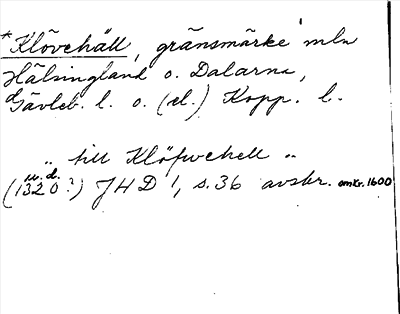 *Klövehäll, gränsmärke mln
Hälsingland o. Dalarna,
Gävleb. l. o. (el.) Kopp. l.
„ till Klöfwehell „
u. d.
(1320?) JHD 1, s. 36 avskr. omkr. 1600